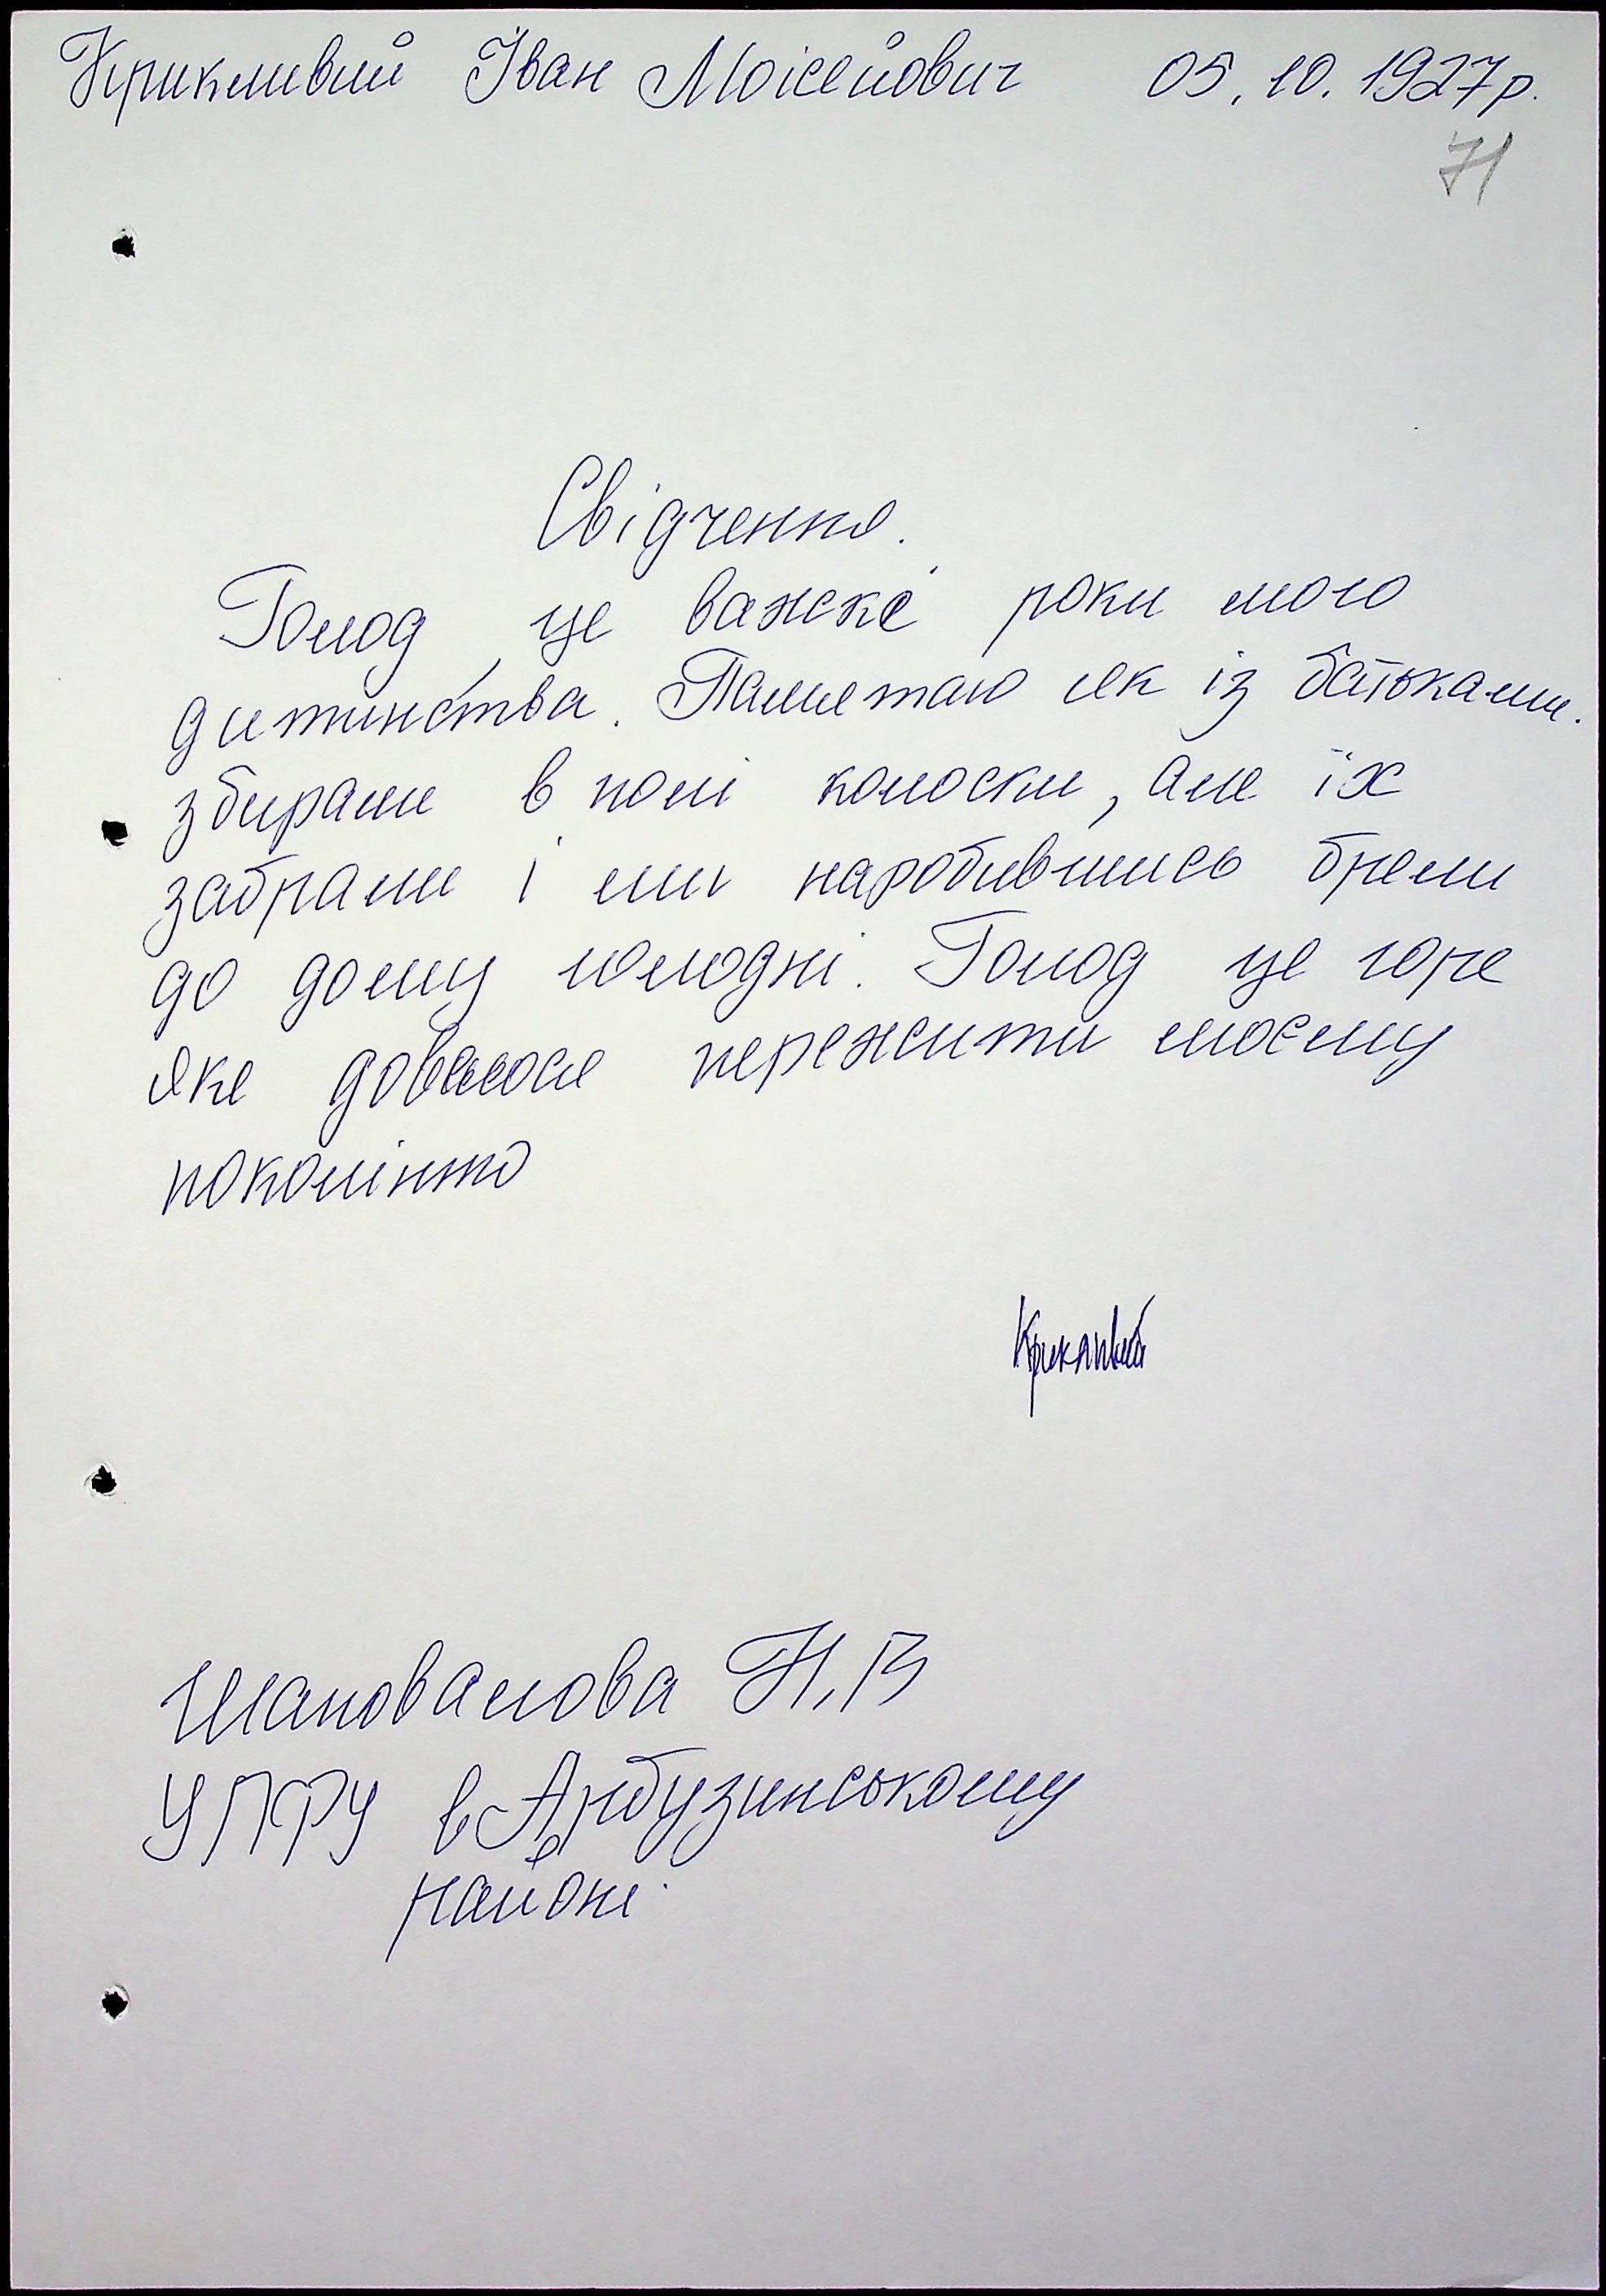 Крикливий Іван Моісейович 05.10.1927р.
71
Свідчення.
Голод, це важкі роки мого
дитинства. Памятаю як із батьками.
збирали в полі колоски, але їх
забрали і ми наробившись брели
до дому голодні. Голод це горе
яке довелося пережити моєму
поколінню
Крикливий
Шаповалова Н.В
УПФУ в Арбузинському
районі.